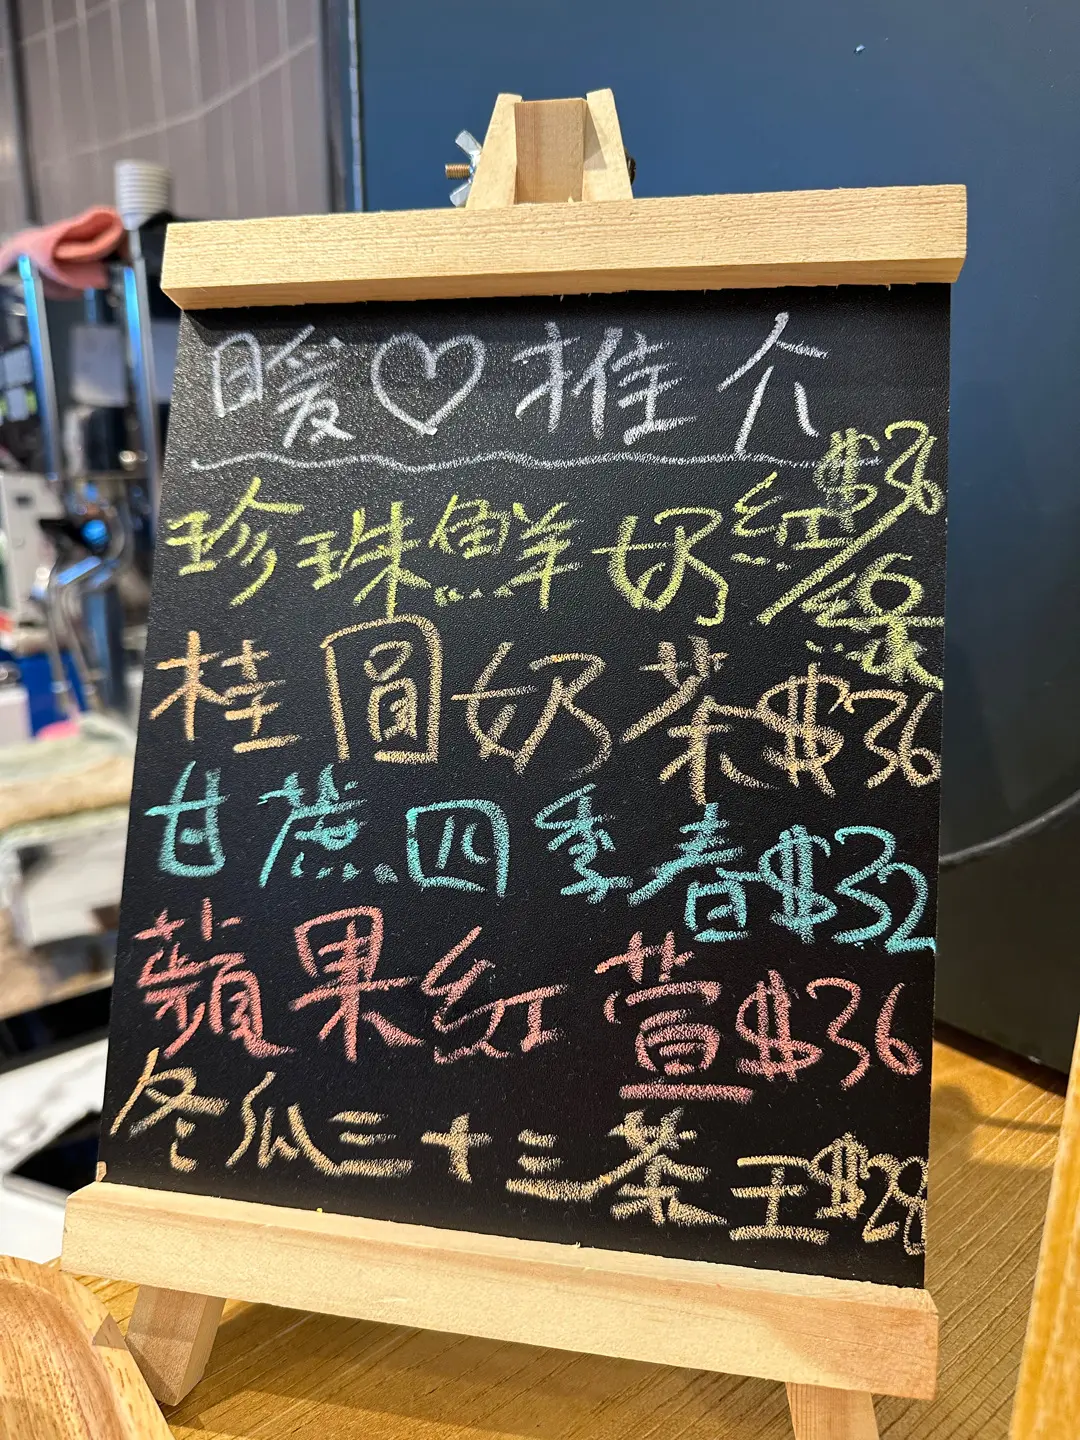 暖♡推介
珍珠鮮奶紅/綠$36
桂圓奶茶$36
甘蔗四季春$32
蘋果紅萱$36
冬瓜三十三茶王$28